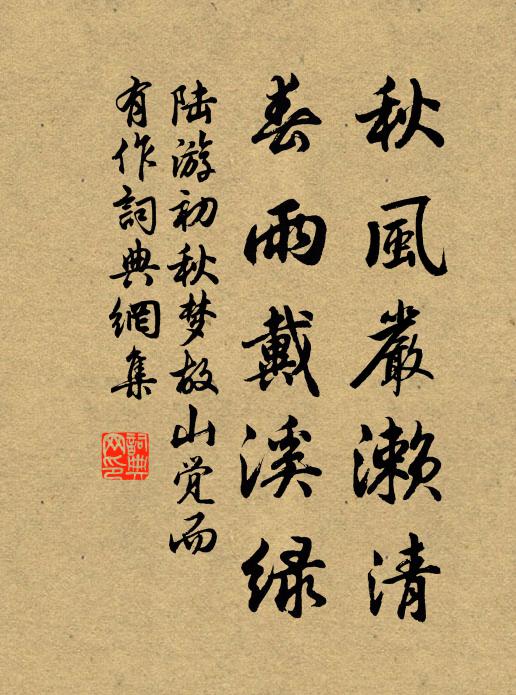 秋風嚴濑清
春雨戴溪绿
陆游初秋梦故山觉而
有作詞典網集
詞典
网印